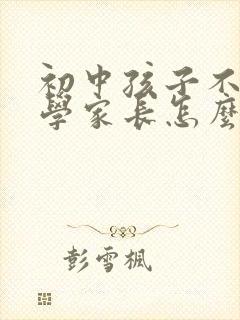 初中孩子不
學家長怎麼
彭雪楓